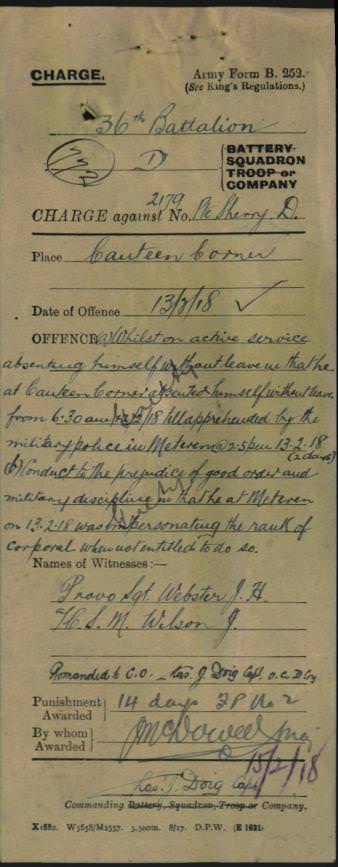 CHARGE.
Army Form B. 252.
(See King's Regulations.)
36th Battalion
772
D
BATTERY
SQUADRON
TROOP or
COMPANY
2179
CHARGE against No. McSherry. D.
Place Canteen Corner
Date of Offence 13/2/18 ✓
OFFENCE (a) Whilst on active service
absenting himself without leave in that he
at Canteen Corner absented himself without leave
from 6.30 am 12/2/18 till apprehended by the
military police in Meteren @ 2.5 pm 13-2-18
(2 days)
(b) Conduct to the prejudice of good order and
military discipline in that he at Meteren
on 13-2-18 was impersonating the rank of
corporal when not entitled to do so.
Names of Witnesses:—
Provo Sgt Webster J. H.
C. S. M. Wilson J.
Remanded to C.O. — Chas. J. Doig Capt. O.C. D Coy
Punishment Awarded 14 days F P No 2
By whom Awarded J McDowell Maj
15/2/18
Chas. J. Doig Capt
Commanding Battery, Squadron, Troop or Company.
X1682. W5658/M2357. 3,500m. 8/17. D.P.W. (E 1621)